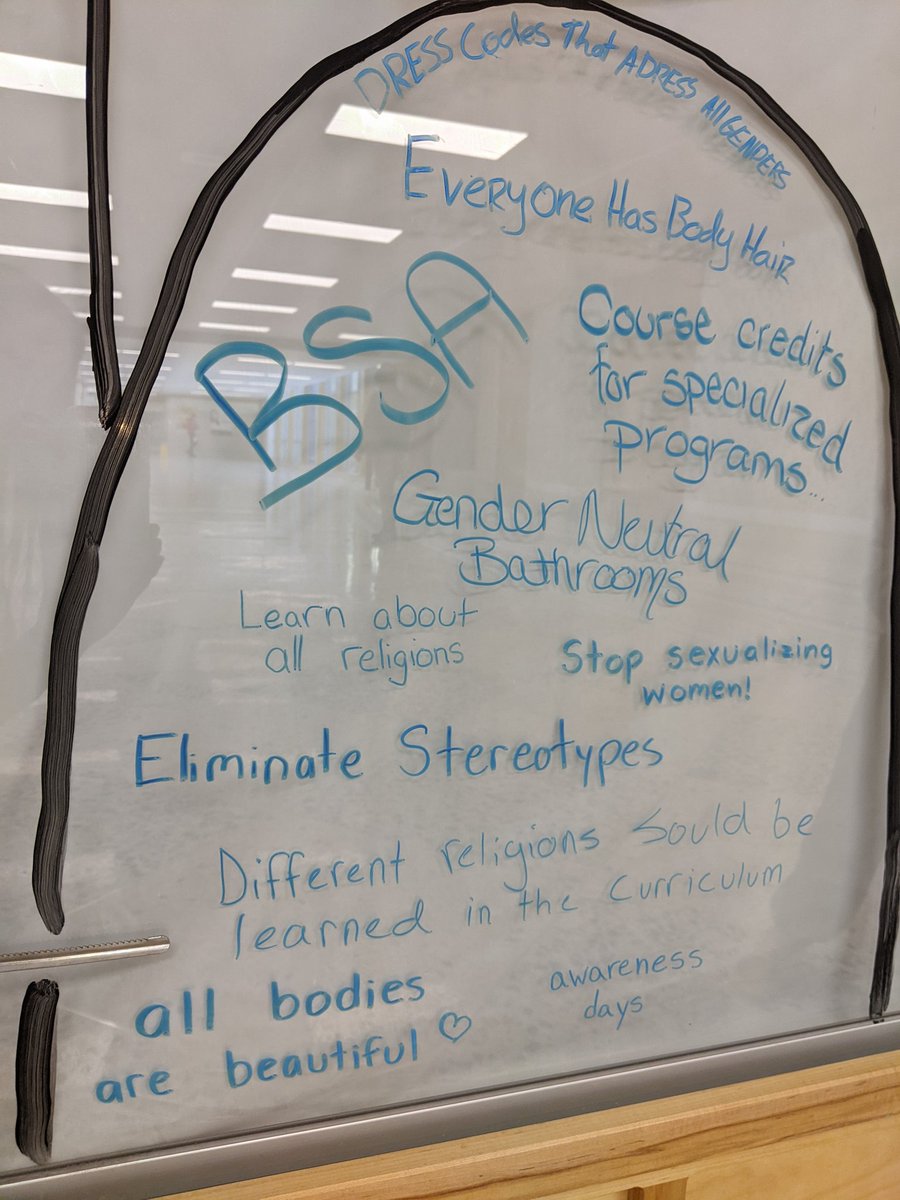 DRESS Codes That ADRESS All GENDERS
Everyone Has Body Hair
BSA
Course credits
for specialized
programs...
Gender Neutral
Bathrooms
Learn about
all religions
Stop sexualizing
women!
Eliminate Stereotypes
Different religions sould be
learned in the curriculum
all bodies
are beautiful ♡
awareness
days